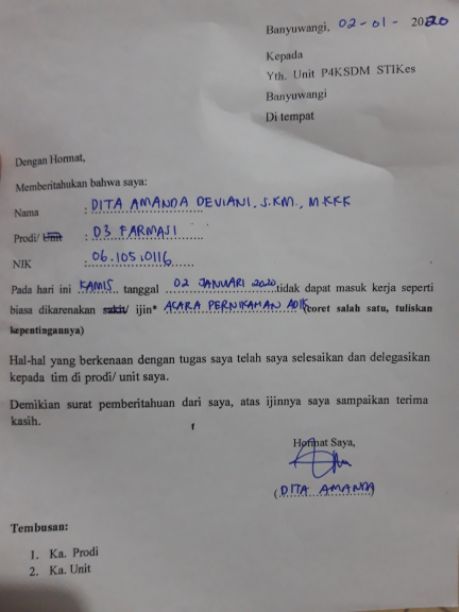 Banyuwangi, 02-01- 2020
Kepada
Yth. Unit P4KSDM STIKes
Banyuwangi
Di tempat
Dengan Hormat,
Memberitahukan bahwa saya:
Nama : DITA AMANDA DEVIANI, S.KM., M.KKK
Prodi/ Unit : D3 FARMASI
NIK : 06.105.0116
Pada hari ini KAMIS tanggal 02 JANUARI 2020 tidak dapat masuk kerja seperti
biasa dikarenakan sakit/ ijin* ACARA PERNIKAHAN ADIK (coret salah satu, tuliskan
kepentingannya)
Hal-hal yang berkenaan dengan tugas saya telah saya selesaikan dan delegasikan
kepada tim di prodi/ unit saya.
Demikian surat pemberitahuan dari saya, atas ijinnya saya sampaikan terima
kasih.
Hormat Saya,
(DITA AMANDA)
Tembusan:
1. Ka. Prodi
2. Ka. Unit